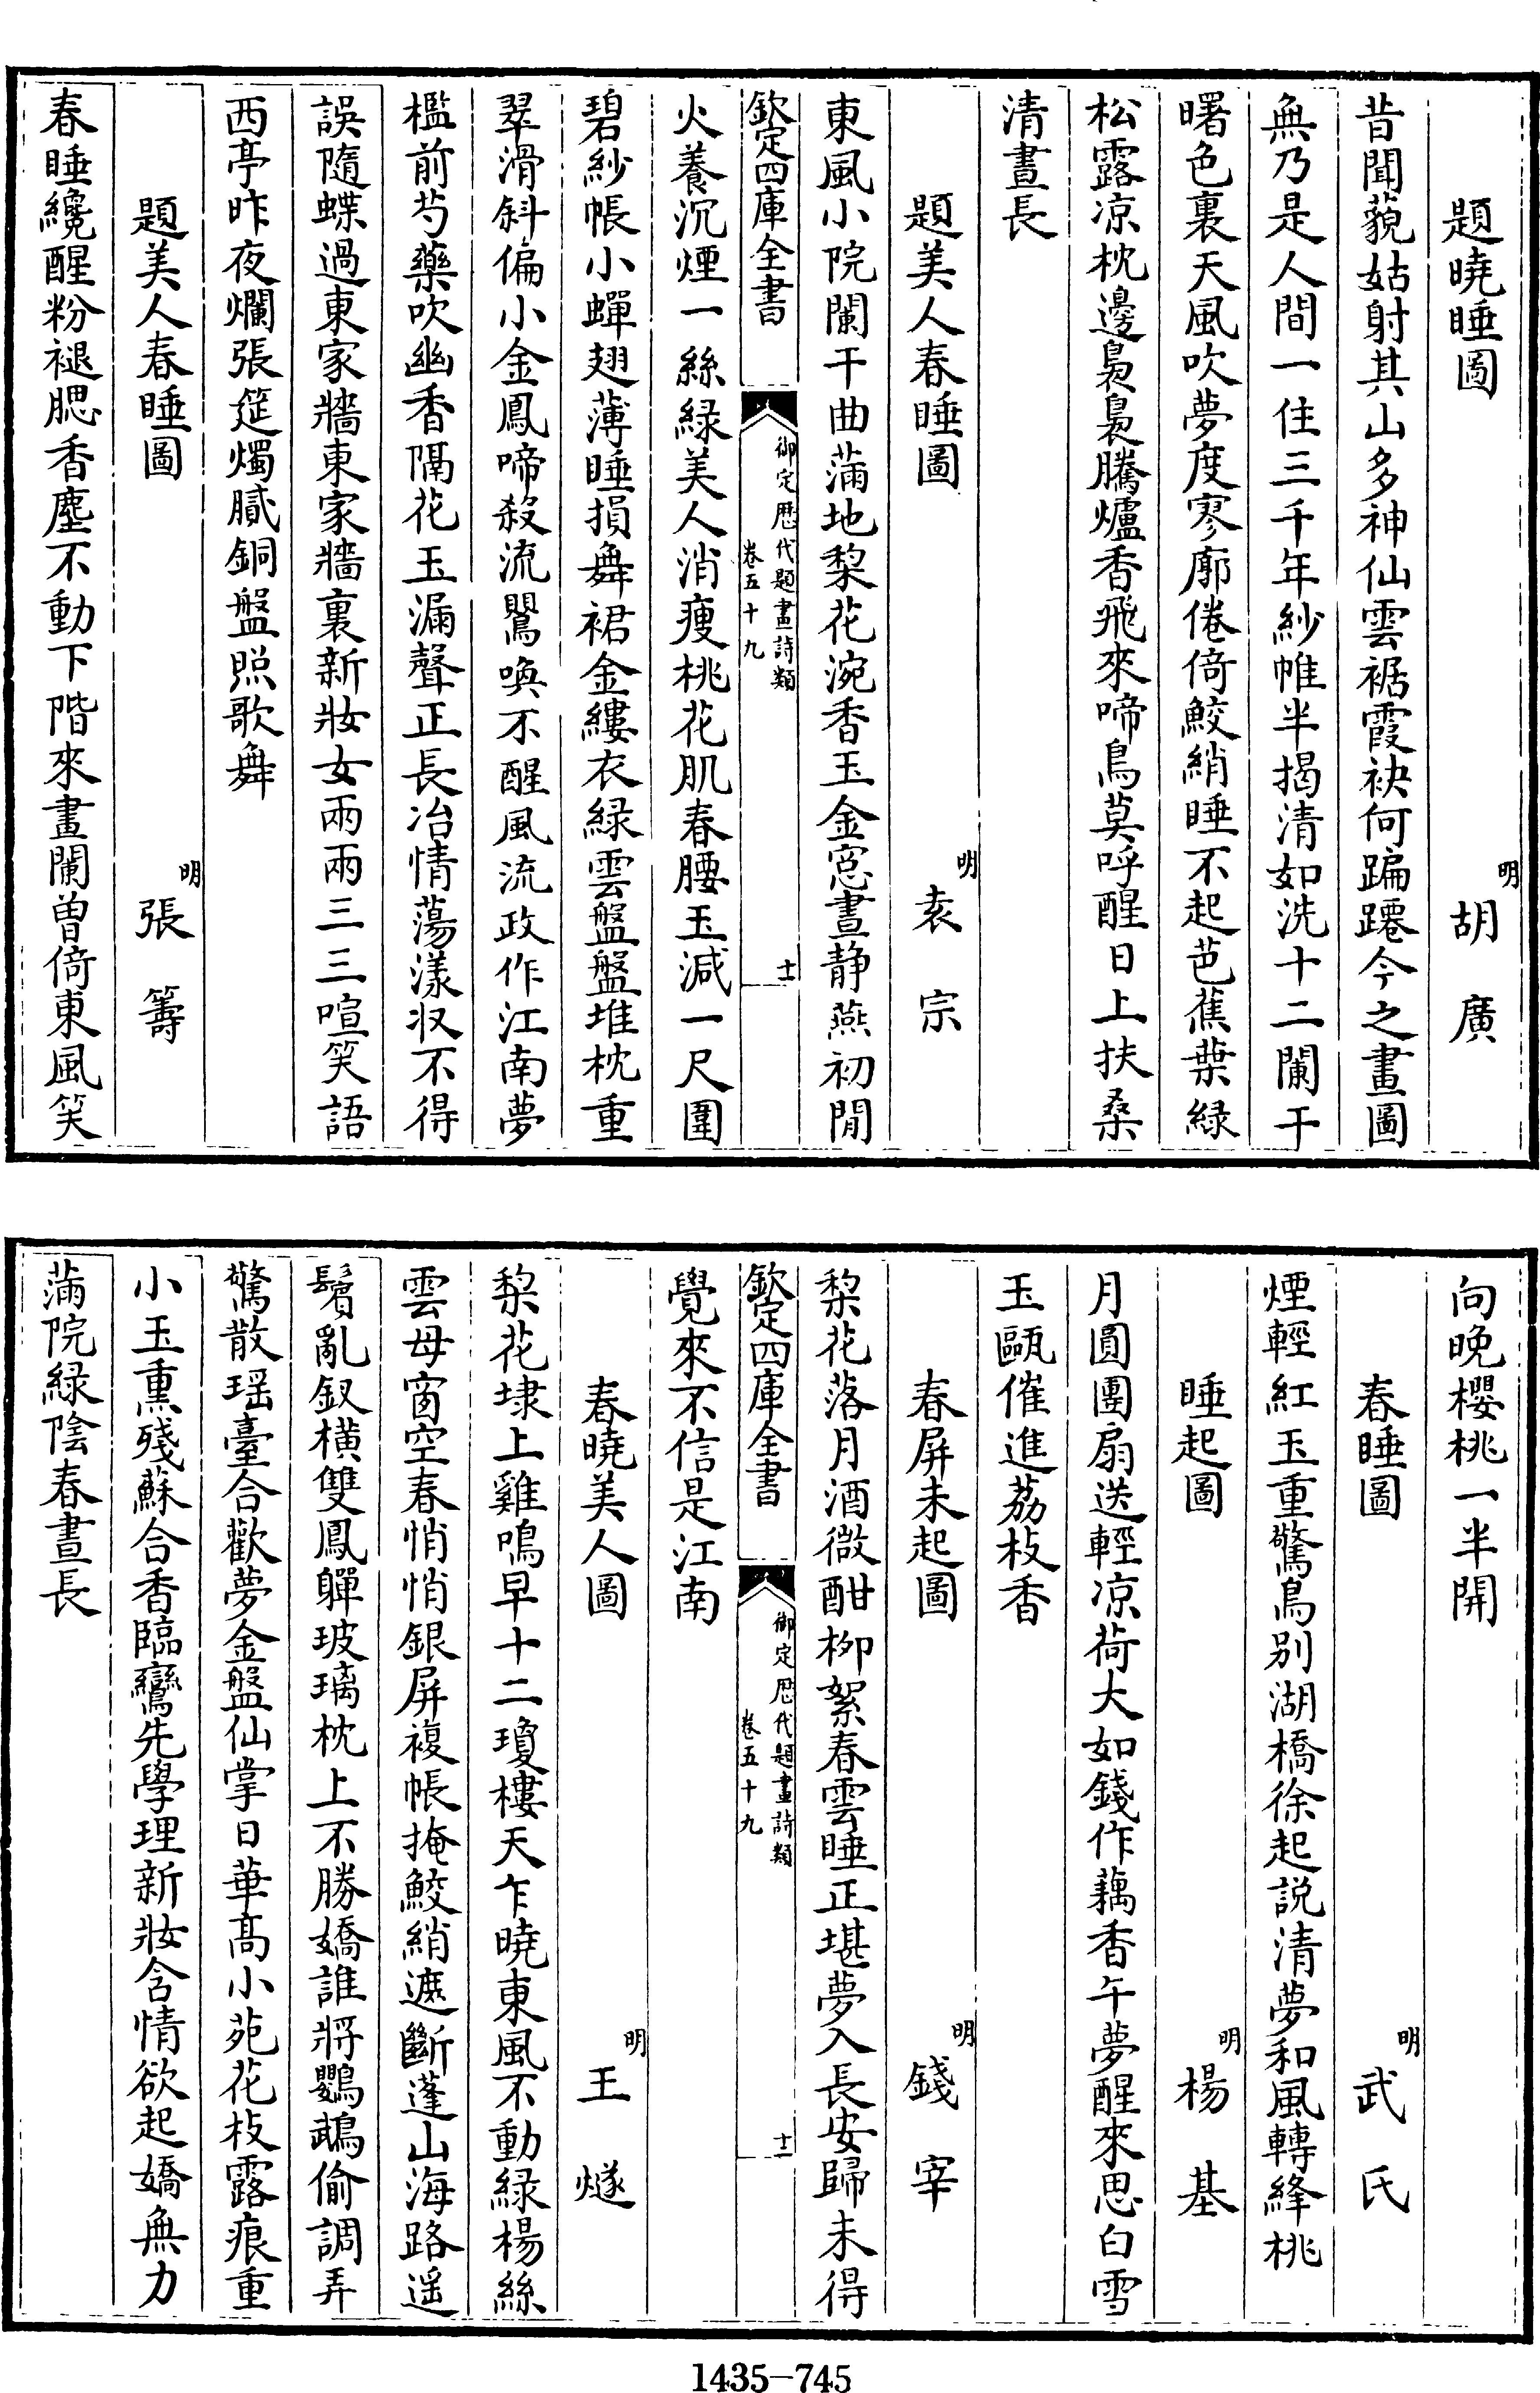 題曉睡圖　明　胡廣
昔聞藐姑射其山多神仙雲裾霞袂何蹁蹮今之畫圖
無乃是人間一住三千年紗帷半揭清如洗十二闌干
曙色裏天風吹夢度寥廓倦倚鮫綃睡不起芭蕉葉緑
松露凉枕邊裊裊騰爐香飛來啼鳥莫呼醒日上扶桑
清晝長
題美人春睡圖　明　袁宗
東風小院闌干曲蒲地棃花涴香玉金窓晝静燕初閒
欽定四庫全書　御定歴代題畫詩類　卷五十九　十一
火養沉煙一絲緑美人消瘦桃花肌春腰玉減一尺圍
碧紗帳小蟬翅薄睡損舞裙金縷衣緑雲盤盤堆枕重
翠滑斜偏小金鳳啼殺流鶯喚不醒風流政作江南夢
檻前芍藥吹幽香隔花玉漏聲正長冶情蕩漾収不得
誤隨蝶過東家牆東家牆裏新妝女兩兩三三喧笑語
西亭昨夜爛張筵燭膩銅盤照歌舞
題美人春睡圖　明　張籌
春睡纔醒粉褪腮香塵不動下階來畫闌曽倚東風笑
向晚櫻桃一半開
春睡圖　明　武氏
煙輕紅玉重驚鳥别湖橋徐起説清夢和風轉絳桃
睡起圖　明　楊基
月圓團扇送輕凉荷大如錢作藕香午夢醒來思白雪
玉甌催進荔枝香
春屏未起圖　明　錢宰
棃花落月酒微酣栁絮春雲睡正堪夢入長安歸未得
欽定四庫全書　御定歴代題畫詩類　卷五十九　十二
覺來不信是江南
春曉美人圖　明　王燧
棃花埭上雞鳴早十二瓊樓天乍曉東風不動緑楊絲
雲母窗空春悄悄銀屏複帳掩鮫綃遮斷蓬山海路遥
鬢亂釵横雙鳳軃玻璃枕上不勝嬌誰將鸚鵡偷調弄
驚散瑶臺合歡夢金盤仙掌日華髙小苑花枝露痕重
小玉熏殘蘇合香臨鸞先學理新妝含情欲起嬌無力
蒲院緑陰春晝長
1435-745